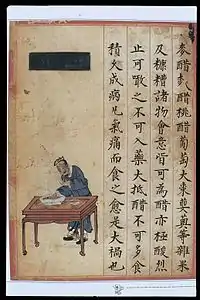 麥醋麴醋桃醋葡萄大棗蘡薁等雜果
及糠糟諸物會意皆可為醋亦極酸烈
止可啖之不可入藥大抵醋不可多食
積久成病凡氣痛而食之愈是大禍也